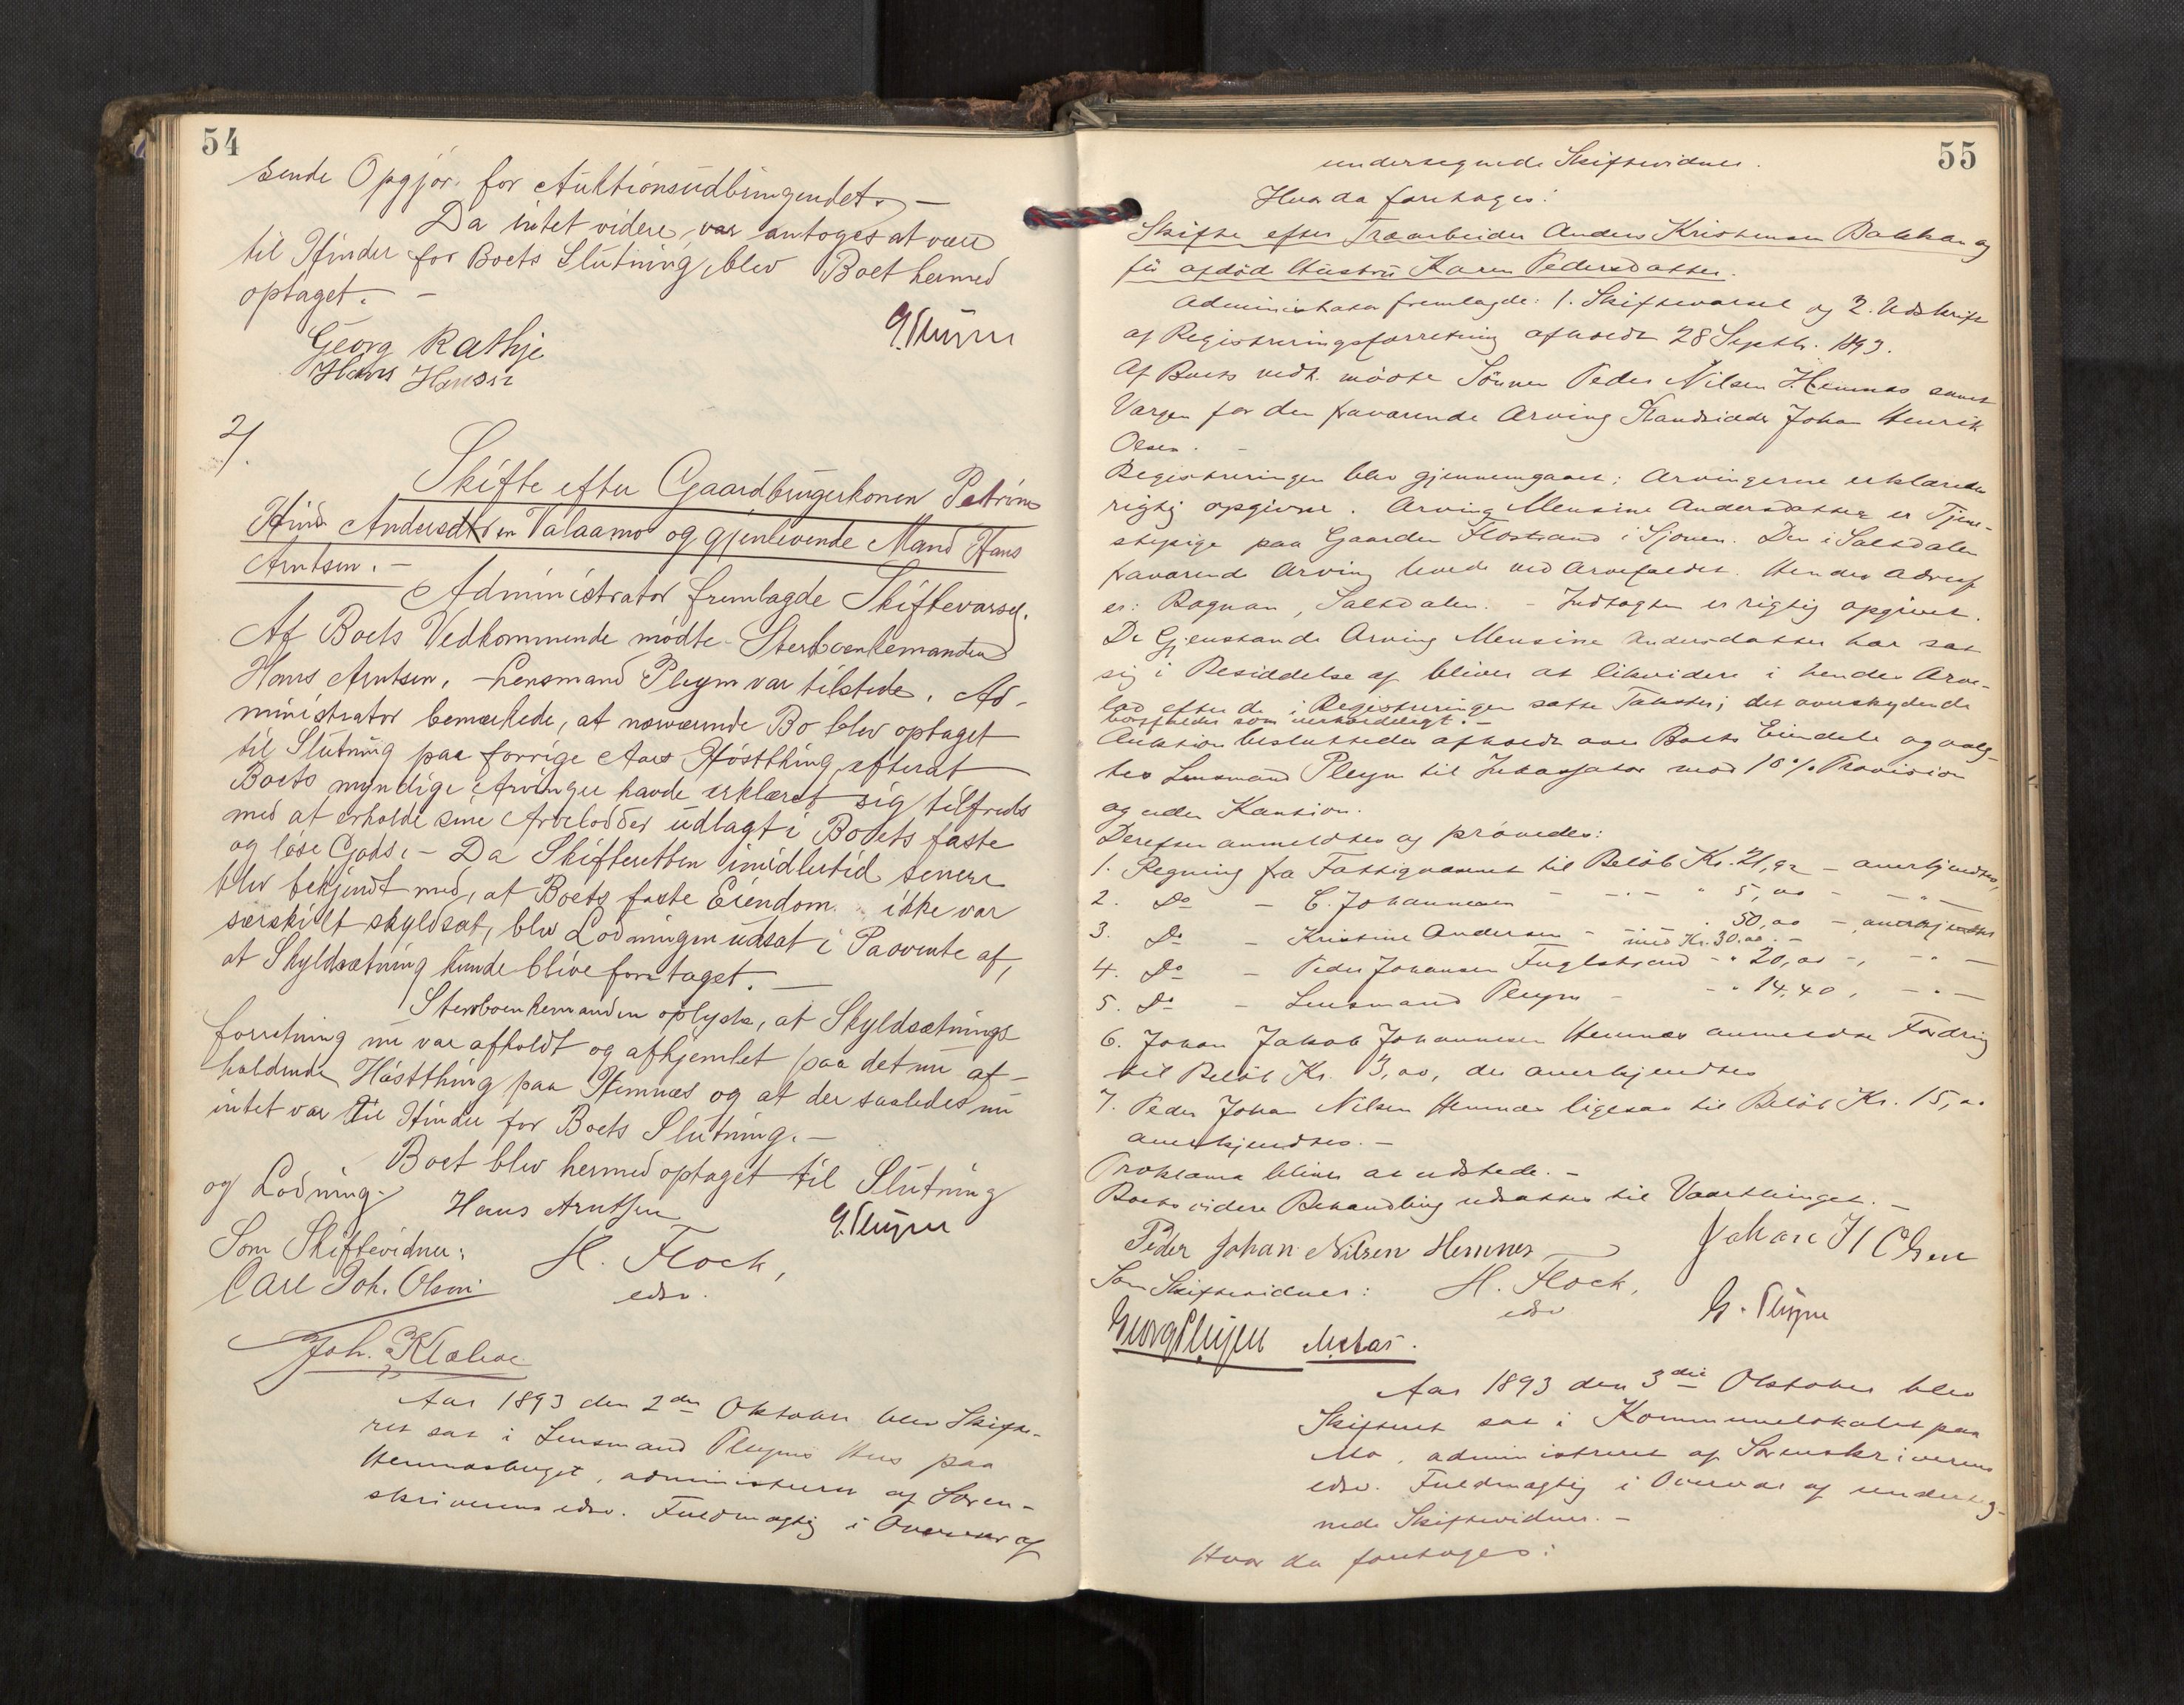 54
sende Opgjør for Auktionsudbringendet. —
Da intet videre var antoges at være
til Hinder for Boets Slutning, blev Boet hermed
optaget. —
G. Pleym
Georg Rathje
Hans Hansen
2/.
Skifte efter Gaardbrugerkonen Petrine
Andersdtr en Valaamo og gjenlevende Mand Hans
Arntsen. —
Administrator fremlagde Skiftevarsel.
Af Boets Vedkommende mødte Sterboenkemanden
Hans Arntsen. Lensmand Pleym var tilstede. Ad-
ministrator bemærkede, at nærværende Bo blev optaget
til Slutning paa forrige Aars Høstthing, efterat
Boets myndige Arvinger havde erklæret sig tilfreds
med at erholde sine Arvelodder udlagt i Boets faste
og løse Gods. — Da Skifteretten imidlertid senere
blev bekjendt med, at Boets faste Eiendom ikke var
særskilt skyldsat, blev Lodningen udsat i Paavente af,
at Skyldsætning kunde blive foretaget. —
Sterboenkemanden oplyste, at Skyldsætnings-
forretning nu var afholdt og afhjemlet paa det nu af-
holdende Høstthing paa Hemnæs og at der saaledes nu
intet var til Hinder for Boets Slutning. —
Boet blev hermed optaget til Slutning
og Lodning.
Hans Arntsen
G. Pleym
Som Skiftevidner:
H. Flock,
edsv.
Carl Joh. Olsen
Joh.
Aar 1893 den 2den Oktober blev Skifte-
ret sat i Lensmand Pleyms Hus paa
Hemnæsberget, administreret af Soren-
skriverens edsv. Fuldmægtig i Overvær af
55
undertegnede Skiftevidner.
Hvor da foretoges:
Skifte efter Træarbeider Anders Kristensen Bakken og
før afdød Hustru Karen Pedersdatter.
Administrator fremlagde: 1. Skiftevarsel og 2. Udskrift
af Registreringsforretning afholdt 28 Septbr. 1893.
Af Boets vedk. mødte Sønnen Peder Nilsen Hemnes samt
Værgen for den fraværende Arving Standsidder Johan Henrik
Olsen. —
Registreringen blev gjennemgaaet; Arvingerne erklæredes
rigtig opgivne. Arving Mensine Andersdatter er Tjene-
stepige paa Gaarden Flostrand i Sjonen. Den i Saltdalen
fraværende Arving levede ved Arvefaldet. Hendes Adresse
er: Rognan, Saltdalen. — Indtægten er rigtig opgivet.
De Gjenstande Arving Mensine Andersdatter har sat
sig i Besiddelse af bliver at likvidere i hendes Arve-
lod efter de i Registreringen satte Takster; det overskydende
bortfalder som uerholdeligt. —
Auktion besluttedes afholdt over Boets Eiendele og valg-
tes Lensmand Pleym til Inkassator mod 10 % Provision
og uden Kaution.
Derefter anmeldtes og prøvedes:
1. Regning fra Fattigvæsenet til Beløb Kr. 21,92 – anerkjendtes,
2. Do – C. Johannesen – . – " 5,00 – – " –
3. Do – Kristine Andersen – . – . 50,00 – anerkjendtes
med Kr. 30.00. –
4. Do – Peder Johansen Fuglstrand – " 20,00 –, – " –
5. Do – Lensmand Pleym – – " 14,40, – " –
6. Johan Jakob Johannesen Hemnes anmeldte Fordring
til Beløb Kr. 3,00, der anerkjendtes
7. Peder Johan Nilsen Hemnes ligesaa til Beløb Kr. 15,00
anerkjendtes. —
Proklama bliver at udstede. —
Boets videre Behandling udsattes til Vaarthinget. —
Peder Johan Nilsen Hemnes
Johan H Olsen
Som Skiftevidner:
H. Flock,
edsv
G. Pleym
Georg Pleym
Aar 1893 den 3die Oktober blev
Skifteret sat i Kommunelokalet paa
Mo, administreret af Sorenskriverens
edsv. Fuldmægtig i Overvær af underteg-
nede Skiftevidner. —
Hvor da foretoges: